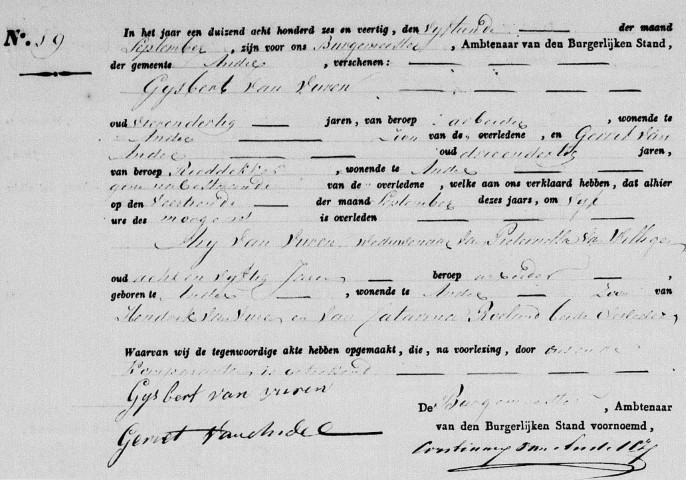 N.º 59
In het jaar een duizend acht honderd zes en veertig, den vyftiende der maand
September, zijn voor ons Burgemeester, Ambtenaar van den Burgerlijken Stand,
der gemeente Andel, verschenen:
Gysbert van Vuren
oud vierendertig jaren, van beroep arbeider, wonende te
Andel Zoon van de overledene, en Gerret van
Andel oud drieendertig jaren,
van beroep Rietdekker, wonende te Andel
van de overledene, welke aan ons verklaard hebben, dat alhier
op den veertiende der maand September dezes jaars, om vyf
ure des morgens is overleden
van Vuren, weduwenaar van Pieternella van
oud acht en vyftig Jaren beroep arbeider
geboren te Andel, wonende te Andel Zoon van
Hendrik van Vuren en van Catarina Roeland beide overleden
Waarvan wij de tegenwoordige akte hebben opgemaakt, die, na voorlezing, door ons en de
Komparanten is getekend
Gysbert van vuren
Gerret van Andel
De Burgemeester, Ambtenaar
van den Burgerlijken Stand voornoemd,
van Andel